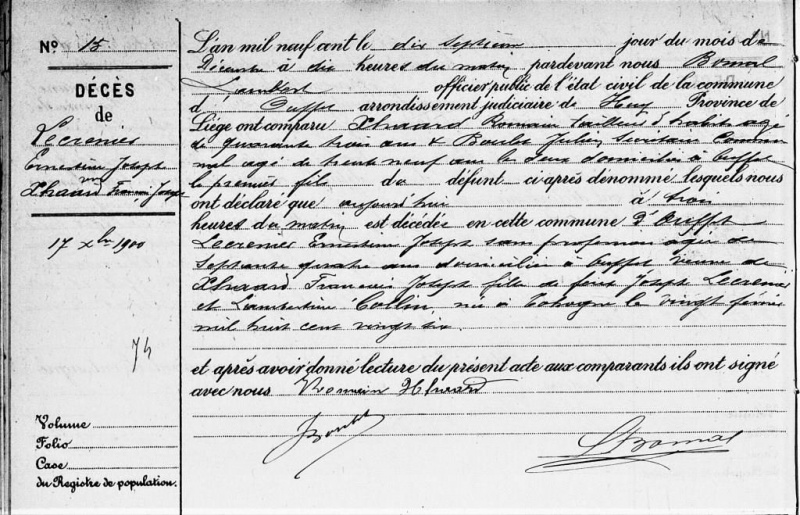 N° 15
DÉCÈS
de
Lecrenier
Ernestine Joseph
Vve
Xhaard Franç. Josep
17 Xbre 1900
74
Volume
Folio
Case
du Registre de population.
L'an mil neuf cent le dix septième jour du mois de
Décembre à dix heures du matin pardevant nous Bomal
Lambert officier public de l'état civil de la commune
d' Ouffet arrondissement judiciaire de Huy Province de
Liége ont comparu Xhaard Romain tailleur d'habits agé
de quarante trois ans & Boulet Julien Secrétaire Commu
nal agé de trente neuf ans les deux domiciliés à Ouffet
le premier fils du défunt ci-après dénommé lesquels nous
ont déclaré que aujourd'hui à trois
heures du matin est décédée en cette commune d'Ouffet
Lecrenier Ernestine Joseph sans profession agée de
Septante quatre ans domiciliée à Ouffet veuve de
Xhaard François Joseph fille de feu Joseph Lecrenier
et Lambertine Collin, née à Tohogne le vingt février
mil huit cent vingt six.
et après avoir donné lecture du présent acte aux comparants ils ont signé
avec nous Romain Xhaard
J Boulet
L Bomal